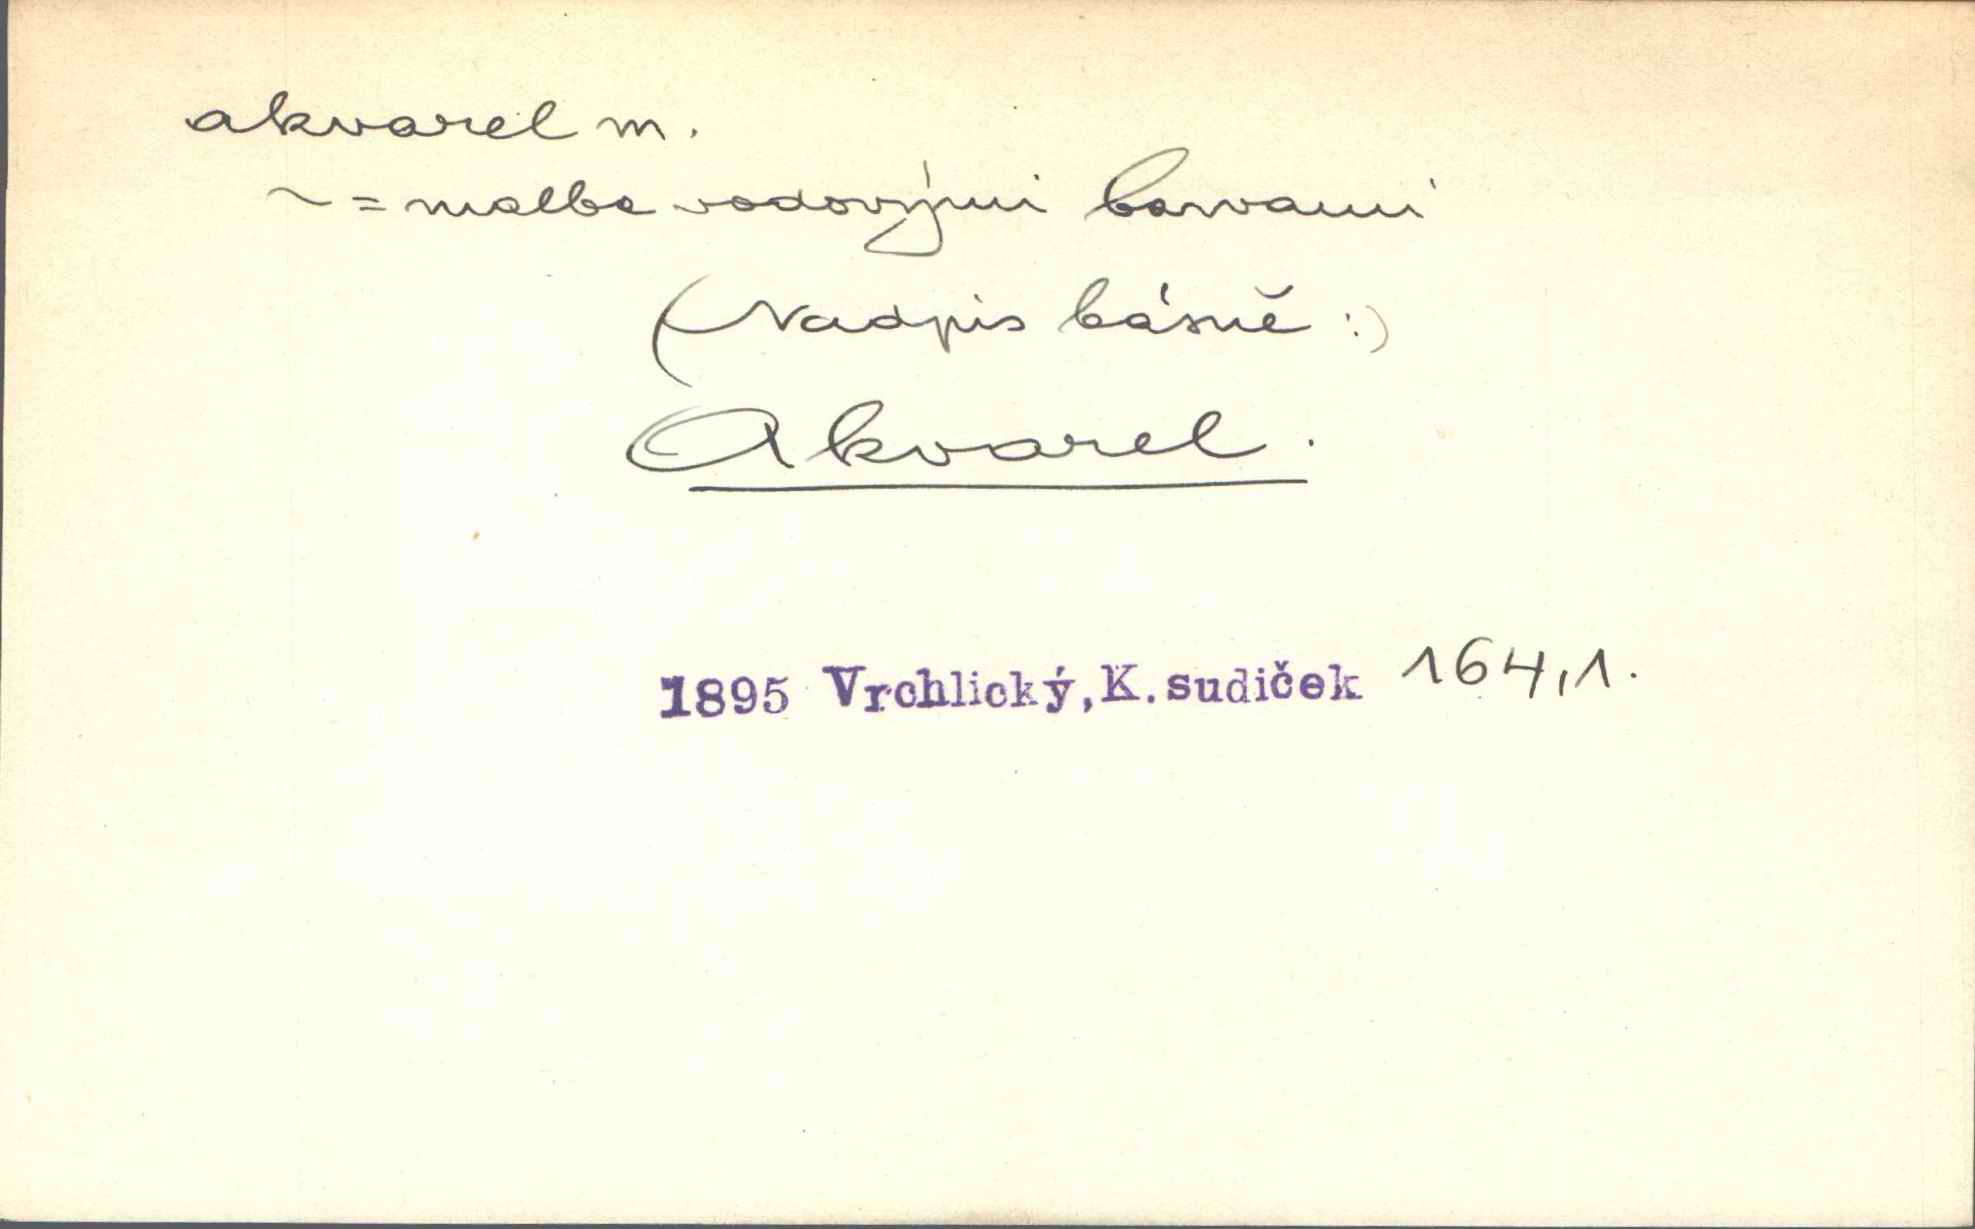 akvarel m.
~ = malba vodovými barvami
(Nadpis básně :)
Akvarel.
1895 Vrchlický, K. sudiček 164,1.